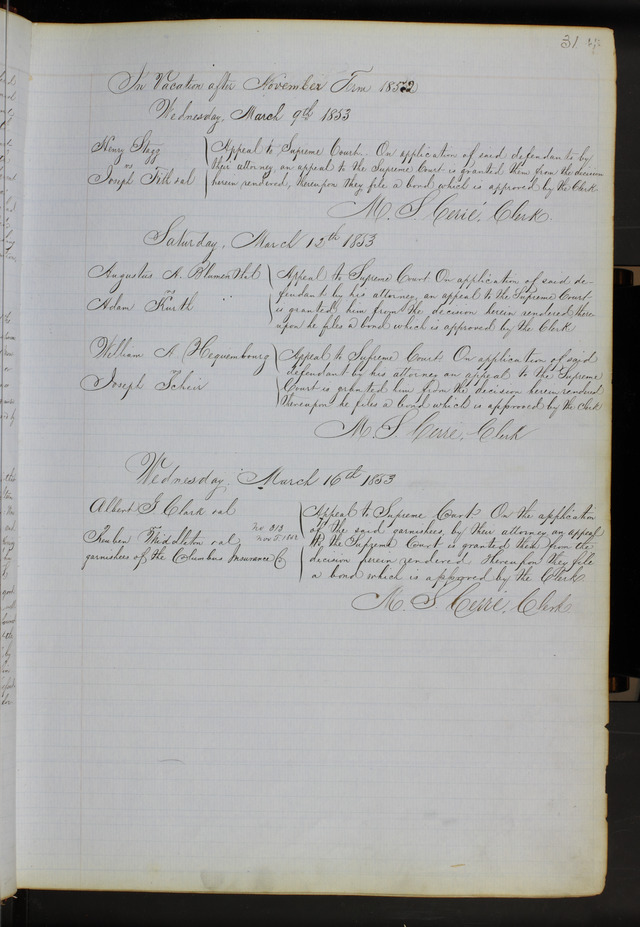 31
In Vacation after November Term 1852
Wednesday, March 9th 1853
Henry Stagg
vs
Joseph et al
Appeal to Supreme Court. On application of said defendants by
their attorney an appeal to the Supreme Court is granted them from the decision
herein rendered, thereupon they file a bond which is approved by the Clerk
M. S. Cerré, Clerk.
Saturday, March 12th 1853
Augustus A. Blumenthal
vs
Adam Kurth
Appeal to Supreme Court On application of said de-
fendant by his attorney, an appeal to the Supreme Court
is granted him from the decision herein rendered there-
upon he files a bond which is approved by the Clerk
William A. Hequembourg
Joseph
Appeal to Supreme Court On application of said
defendant by his attorney an appeal to the Supreme
Court is granted him from the decision herein rendered
thereupon he files a bond which is approved by the Clerk
M. S. Cerré, Clerk
Wednesday, March 16th 1853
Albert G Clark et al
vs
Reuben Middleton et al
garnishees of the Columbus Insurance Co
No 313
Nov T. 1852
Appeal to Supreme Court On the application
of the said garnishees, by their attorney, an appeal
to the Supreme Court is granted them from the
decision herein rendered thereupon they file
a bond which is approved by the Clerk
M. S. Cerré, Clerk